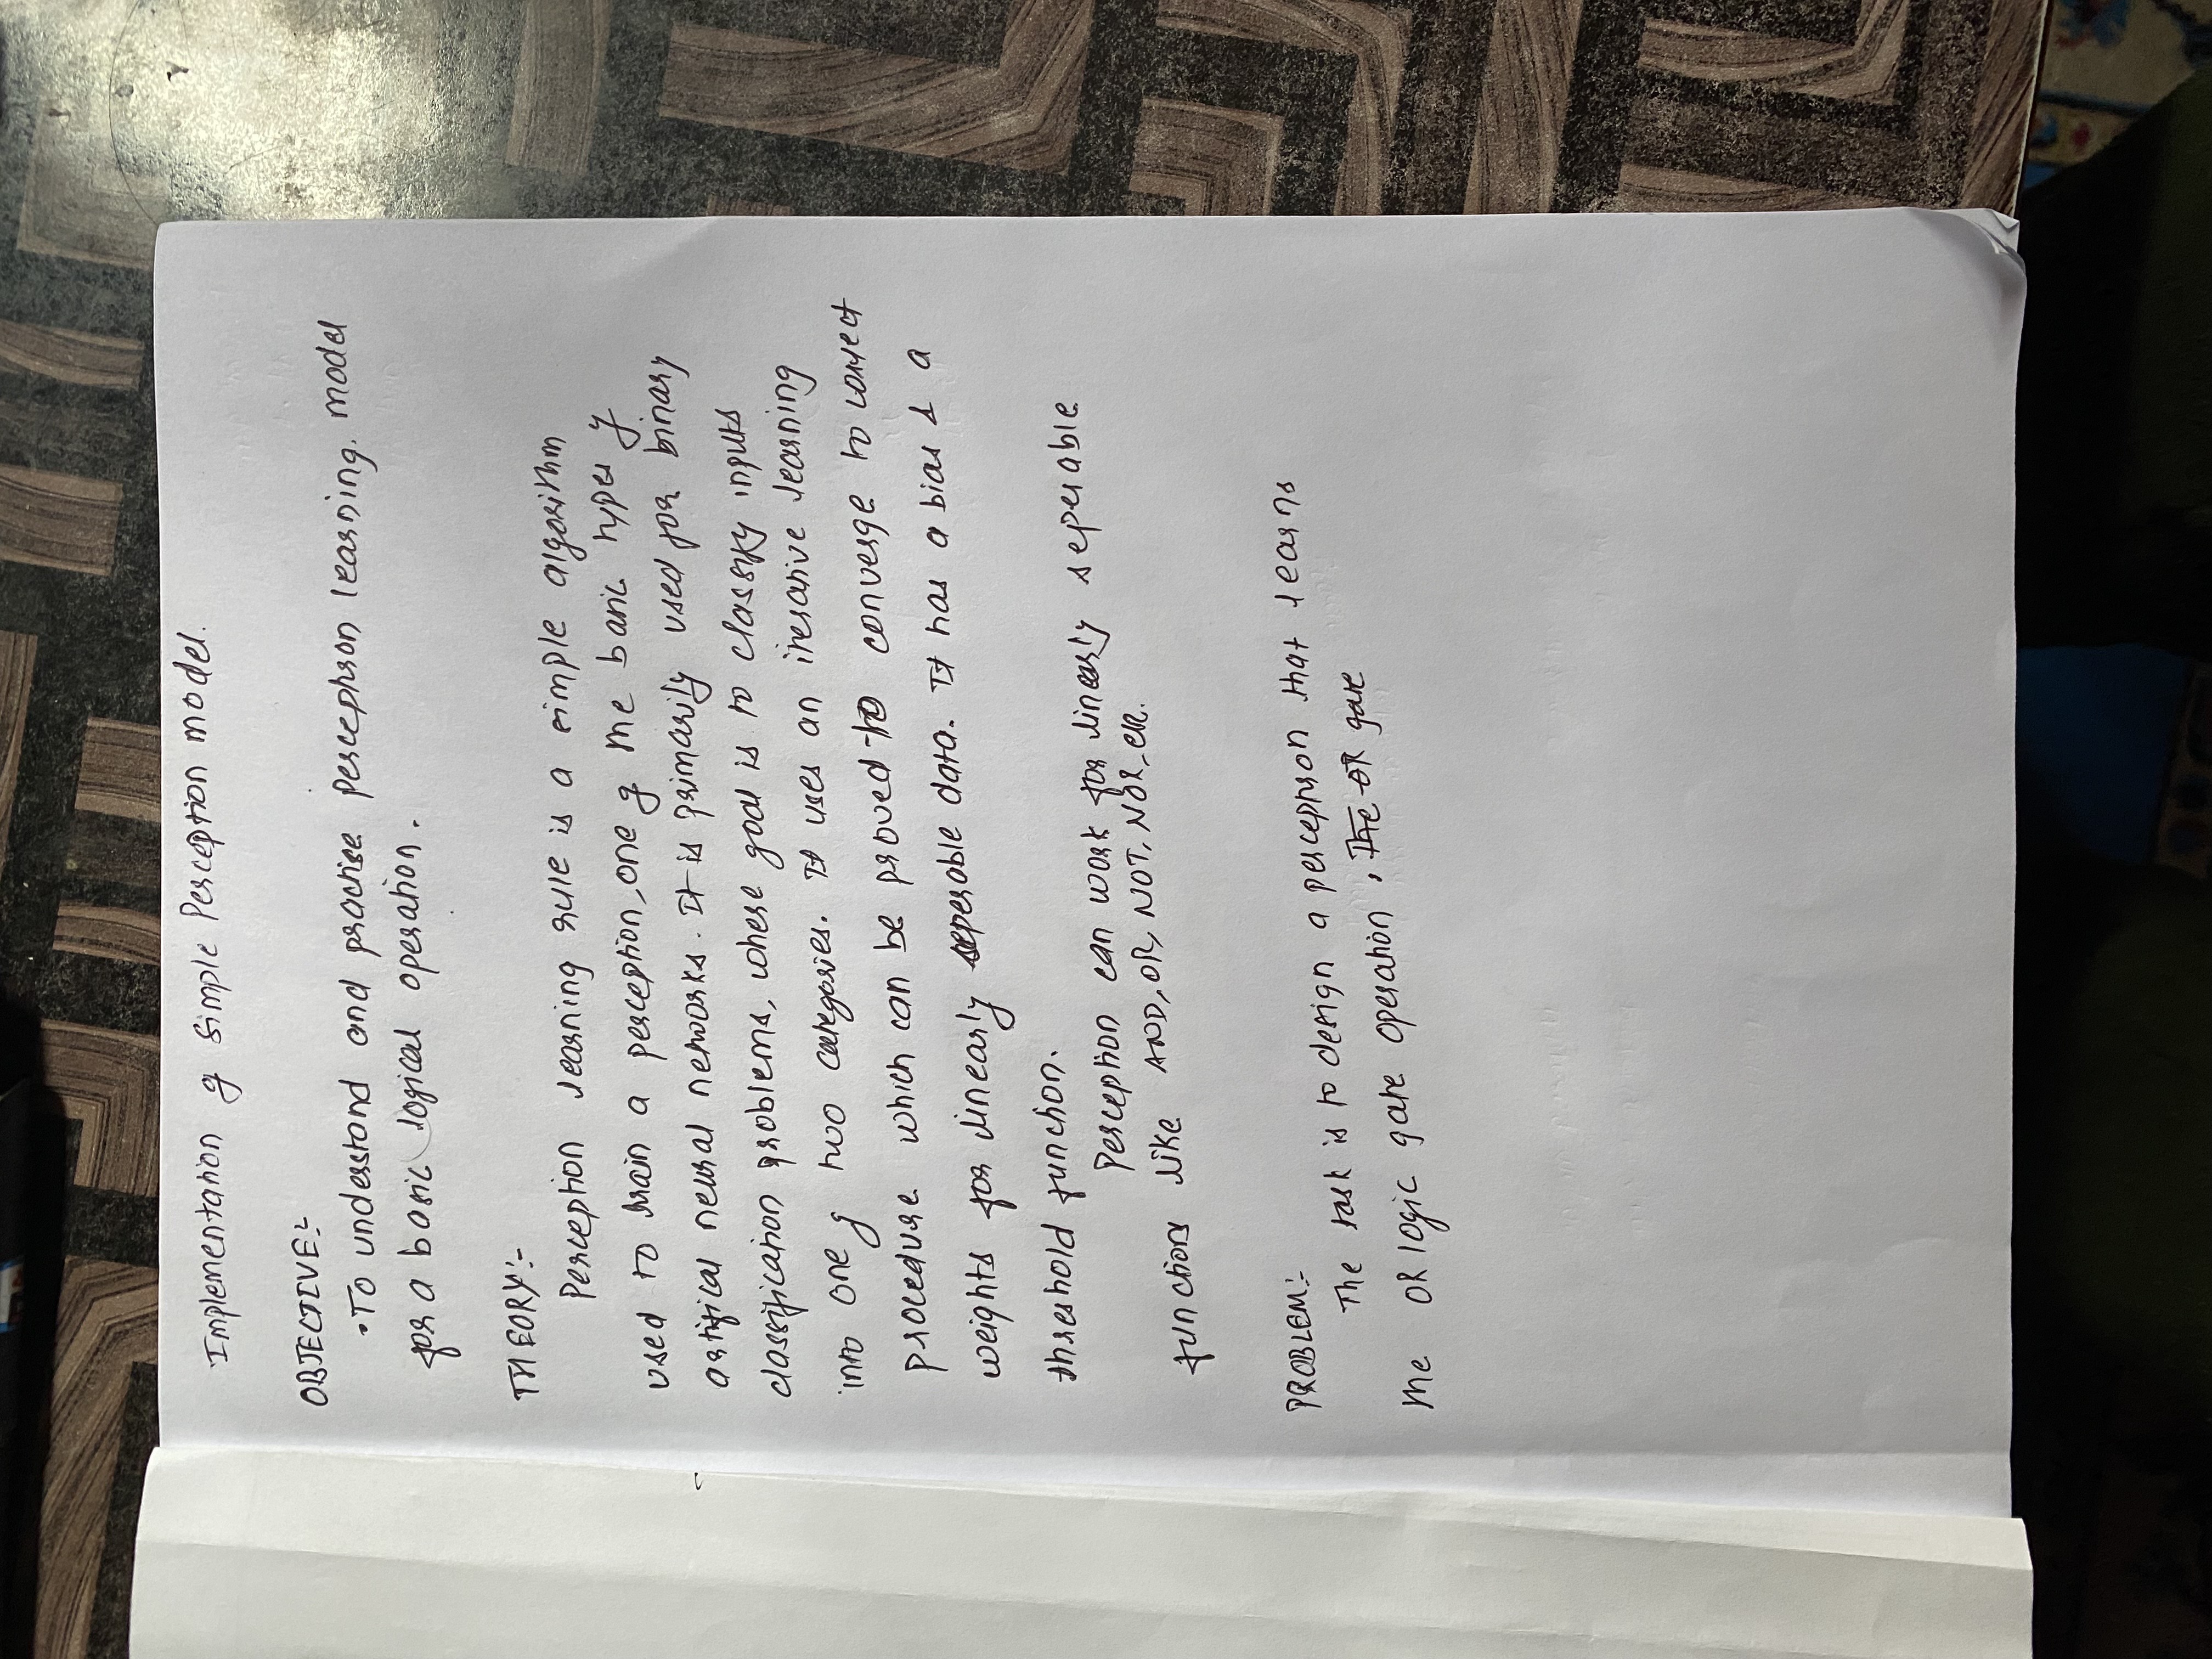 Implementation of Simple Perception model.
OBJECTIVE:-
•To understand and practise perceptron learning. model
for a basic logical operation.
THEORY:-
Perception learning rule is a simple algorithm
used to train a perception, one of the basic types of
artifical neural networks. It is primarily used for binary
classification problems, where goal is to classify inputs
into one of two categories. It uses an iterative learning
procedure which can be proved to converge to correct
weights for linearly seperable data. It has a bias & a
threshold function.
Perception can work for linearly seperable
functions like AND, OR, NOT, NOR, etc.
PROBLEM:-
The task is to design a perceptron that learns
the OR logic gate operation. The OR gate